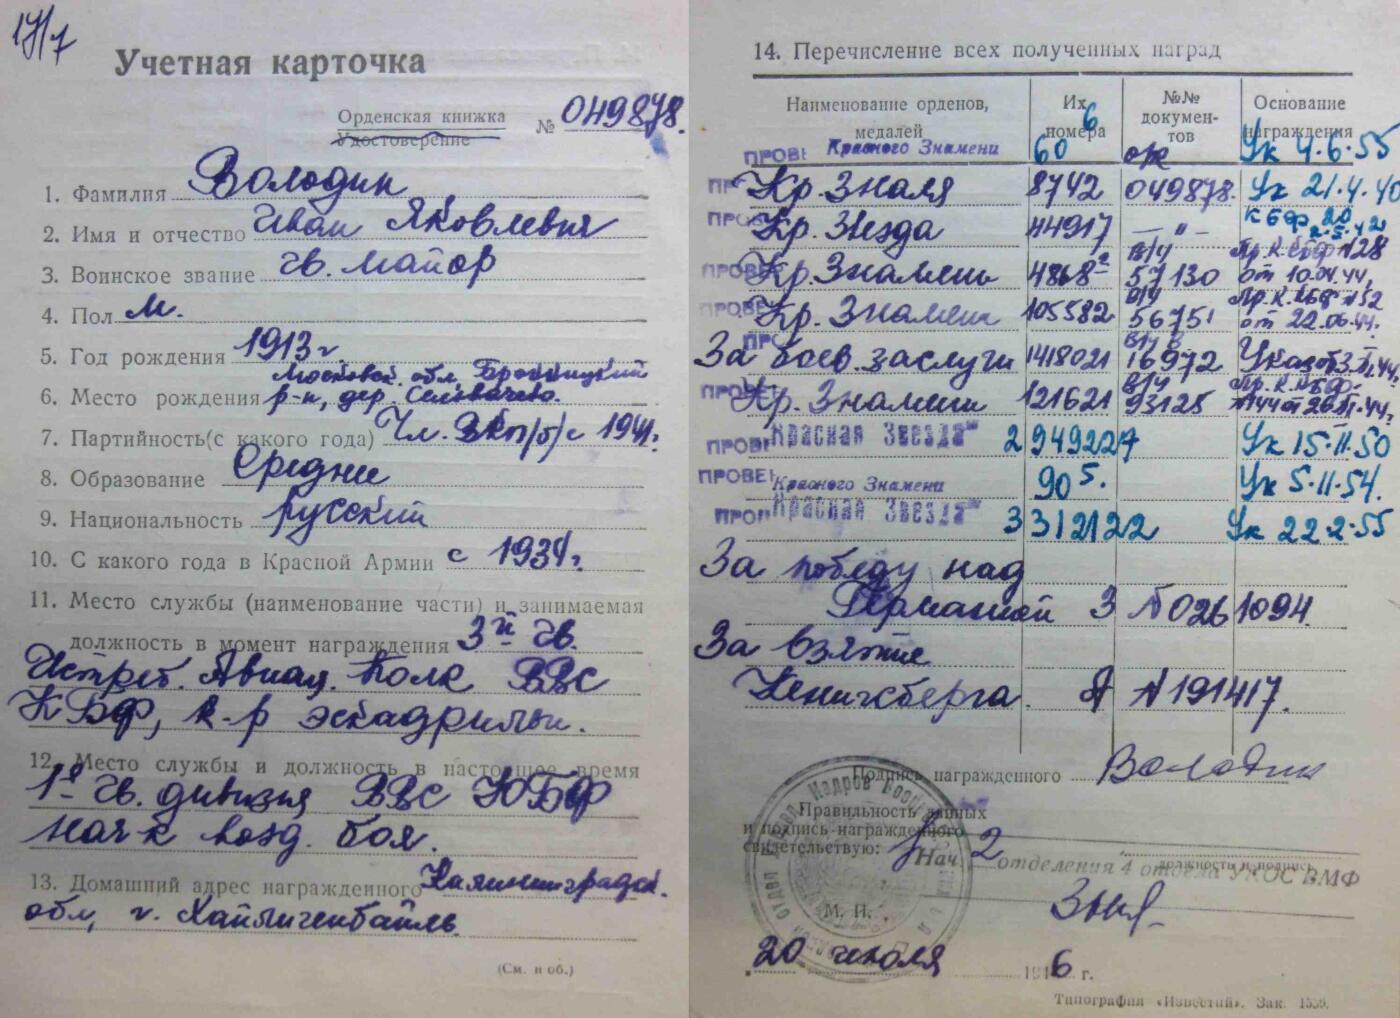 17/7
Учетная карточка
Орденская книжка
Удостоверение
№ 049878.
1. Фамилия Володин
2. Имя и отчество Иван Яковлевич
3. Воинское звание гв. майор
4. Пол м.
5. Год рождения 1913 г.
Московск. обл. Бронницкий
6. Место рождения р-н, дер. Селевачево.
7. Партийность (с какого года) Чл. ВКП/б/ с 1941г.
8. Образование Средние
9. Национальность русский
10. С какого года в Красной Армии с 1934г.
11. Место службы (наименование части) и занимаемая
должность в момент награждения 3й гв.
Истреб. Авиац. Полк ВВС
КБФ, к-р эскадрильи.
12. Место службы и должность в настоящее время
1я гв. дивизия ВВС ЮБФ
нач-к возд. боя.
13. Домашний адрес награжденного Калининградск.
обл, г. Хайлигенбайль
(См. н об.)
14. Перечисление всех полученных наград
Наименование орденов, медалей
Их номера
№№ документов
Основание награждения
6
ПРОВЕ Красного Знамени 60 ок Ук 4.6.55
Кр. Знамя 8742 049878. Ук 21.4.40
Кр. Звезда 44917 — " — КБФ 20 2.5.42
Кр. Знамень 4868² в/у 57130 Пр. К. КБФ №28 от 10.04.44.
ПРОВЕ Кр. Знамени 105582 в/у 56751 Пр. К. КБФ №52 от 22.06.44.
За боев. заслуги 1418021 в/у В 16972 Указ от 3.XI.44.
ПРОВЕ Кр. Знамени 121621 в/у 93125 Пр. К. КБФ. №144 от 26.XI.44г.
ПРОВЕ Красная Звезда" 2949227 Ук 15.11.50
ПРОВЕ Красного Знамени 905. Ук 5.11.54.
ПРОВ Красная Звезда" 3312122 Ук 22.2.55
За победу над
Германией З №0261094.
За взятие
Кенигсберга А №191417.
Подпись награжденного Володин
Правильность данных
и подпись награжденного
свидетельствую:
Нач. 2 отделения 4 отдела УКОС ВМФ
должность и подпись
М. П.
20 июля 1946 г.
Типография «Известий». Зак. 1559.